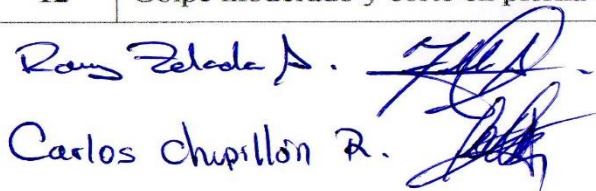 12 Golpe moderado y corte en pierna
Rony Zelada A.
Carlos Chupillón R.